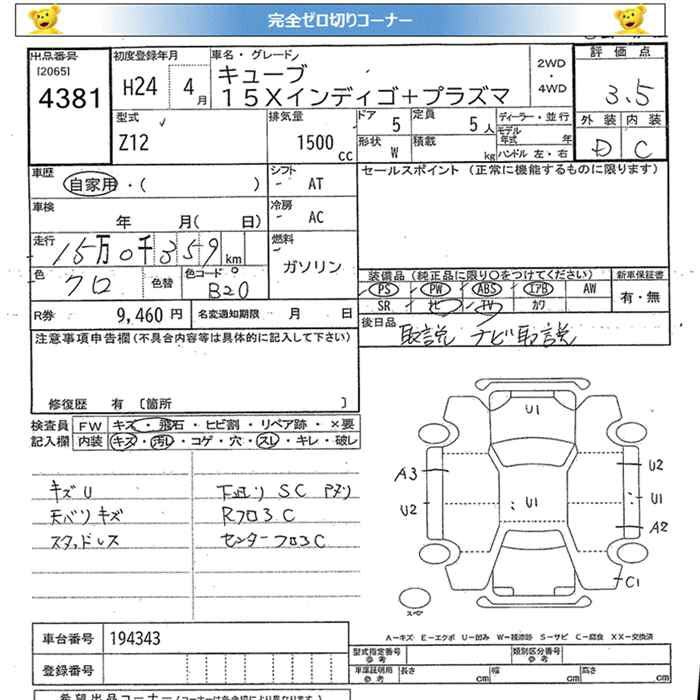 完全ゼロ切りコーナー
出品番号 初度登録年月 車名・グレード 2WD・4WD 評価点
[2065] 4381 H24 4月 キューブ 3.5
15Xインディゴ+プラズマ
型式 排気量 ドア 5 定員 5人 ディーラー・並行 外装 内装
Z12 1500cc 形状 W 積載 kg モデル年式 年 D C
ハンドル 左・右
車歴 シフト セールスポイント (正常に機能するものに限ります)
自家用・( ) AT
車検 年 月( 日) 冷房 AC
走行 15万0千359km 燃料 ガソリン
色 クロ 色替 色コード B20 装備品 (純正品に限り○をつけてください) 新車保証書
PS PW ABS エアB AW 有・無
SR ナビ TV カワ
R券 9,460円 名変通知期限 月 日 後日品 取説 ナビ取説
注意事項申告欄(不具合内容等は具体的に記入して下さい)
修復歴 有 [箇所 ]
検査員 FW キズ・飛石・ヒビ割・リペア跡・×要
記入欄 内装 キズ・汚レ・コゲ・穴・スレ・キレ・破レ
キズU 下廻り SC アタリ
天バリキズ Rフロ3C
スタッドレス センターフロ3C
U1
A3 U2
U2 U1 U1
A2
C1
スペア
A－キズ E－エクボ U－凹み W－補修跡 S－サビ C－腐食 XX－交換済
車台番号 194343 型式指定番号 参考 類別区分番号 参考
登録番号 車庫証明用 参考 長さ cm 幅 cm 高さ cm
希望出品コーナー